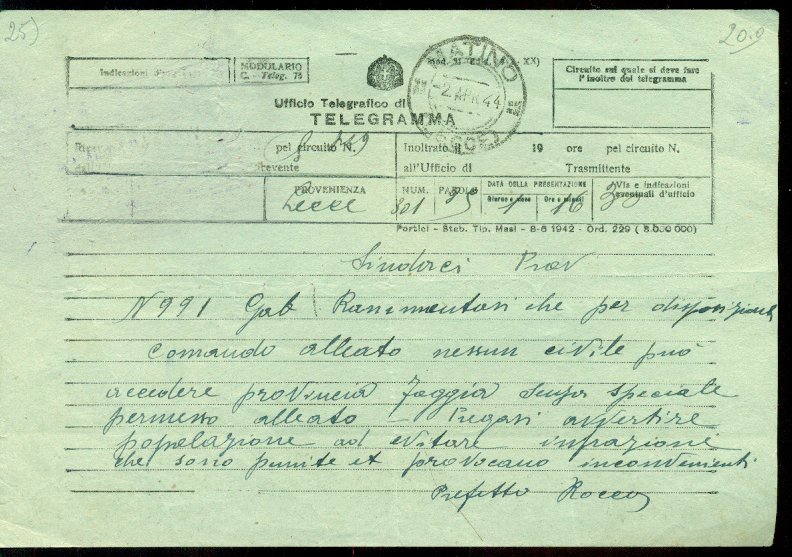 25)
20.0
Indicazioni d'urgenza
MODULARIO
C. - Teleg. 75
XX)
Circuito sul quale si deve fare
l'inoltro del telegramma
MATINO
2. APR. 44
LECCE
Ufficio Telegrafico di
TELEGRAMMA
pel circuito N.
Inoltrato il 19 ore pel circuito N.
Ricevente
all'Ufficio di Trasmittente
PROVENIENZA
NUM.
PAROLE
DATA DELLA PRESENTAZIONE
Giorno e mese
Ore e minuti
Via e indicazioni
eventuali d'ufficio
Lecce 301 25 1 16
Portici - Stab. Tip. Masi - 8-6 1942 - Ord. 229 ( 8.000 000)
Sindaci Prov
N 991 Gab Rammentasi che per disposizione
Comando alleato nessun civile può
accedere provincia Foggia senza speciale
permesso alleato - Pregasi avvertire
popolazione ad evitare infrazioni
che sono punite et provocano inconvenienti
Prefetto Rocco